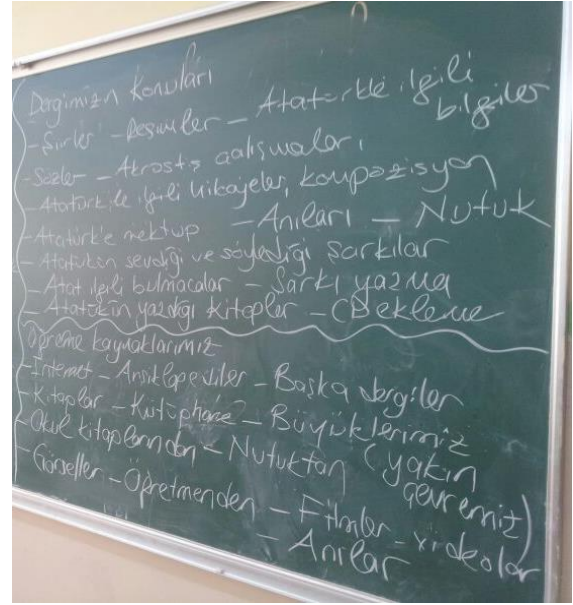 Dergimizn Konuları
- Şiirler - Resimler - Atatürkle ilgili bilgiler
- Sözler - Akrostiş çalışmaları
- Atatürk ile ilgili hikayeler, kompozisyon
- Atatürk'e mektup - Anıları - Nutuk
- Atatükün sevdiği ve söylediği şarkılar
- Atat ilgili bulmacalar - Şarkı yazma
- Atatükün yazdığı kitaplar - CD ekleme
Öğreme kaynaklarımız
- İnternet - Ansiklopediler - Başka dergiler
- Kitaplar - Kütüphane - Büyüklerimiz
- Okul kitaplarından - Nutuktan (yakın çevremiz)
- Görseller - Öğretmenden - Filmler - videolar
- Anılar